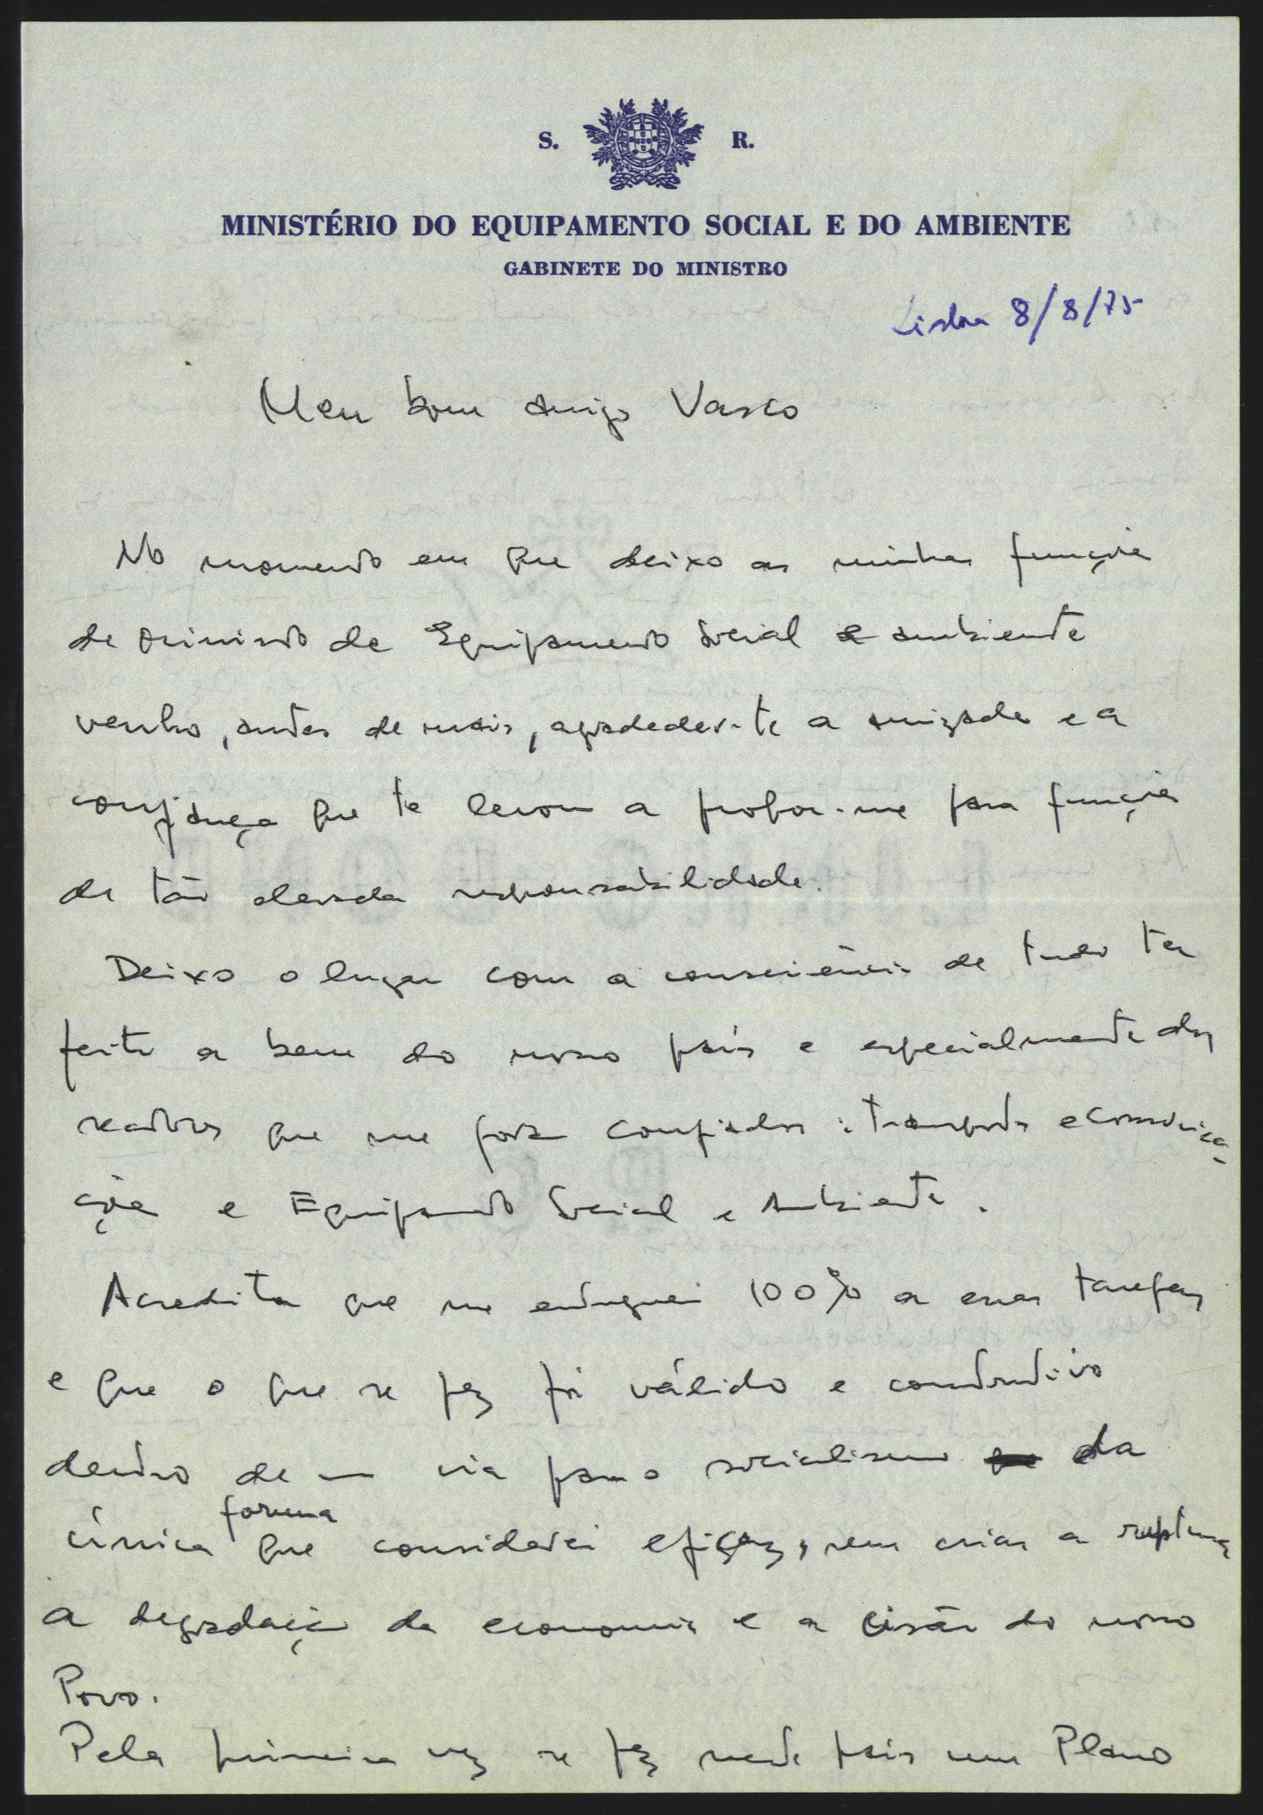 S. R.
MINISTÉRIO DO EQUIPAMENTO SOCIAL E DO AMBIENTE
GABINETE DO MINISTRO
Lisboa 8/8/75
Meu bom amigo Vasco
No momento em que deixo as minhas funções
de Ministro de Equipamento Social e Ambiente
venho, antes de mais, agradecer-te a amizade e a
confiança que te levou a propor-me para funções
de tão elevada responsabilidade.
Deixo o lugar com a consciência de tudo ter
feito a bem do nosso país e especialmente dos
sectores que me foram confiados: transportes e comunica-
ções e Equipamento Social e Ambiente.
Acredita que me entreguei 100% a essas tarefas
e que o que se fez foi válido e construtivo
dentro de uma via para o socialismo da
única forma que considerei eficaz, sem criar a ruptura
a degradação da economia e a cisão do nosso
Povo.
Pela primeira vez se fez neste país um Plano